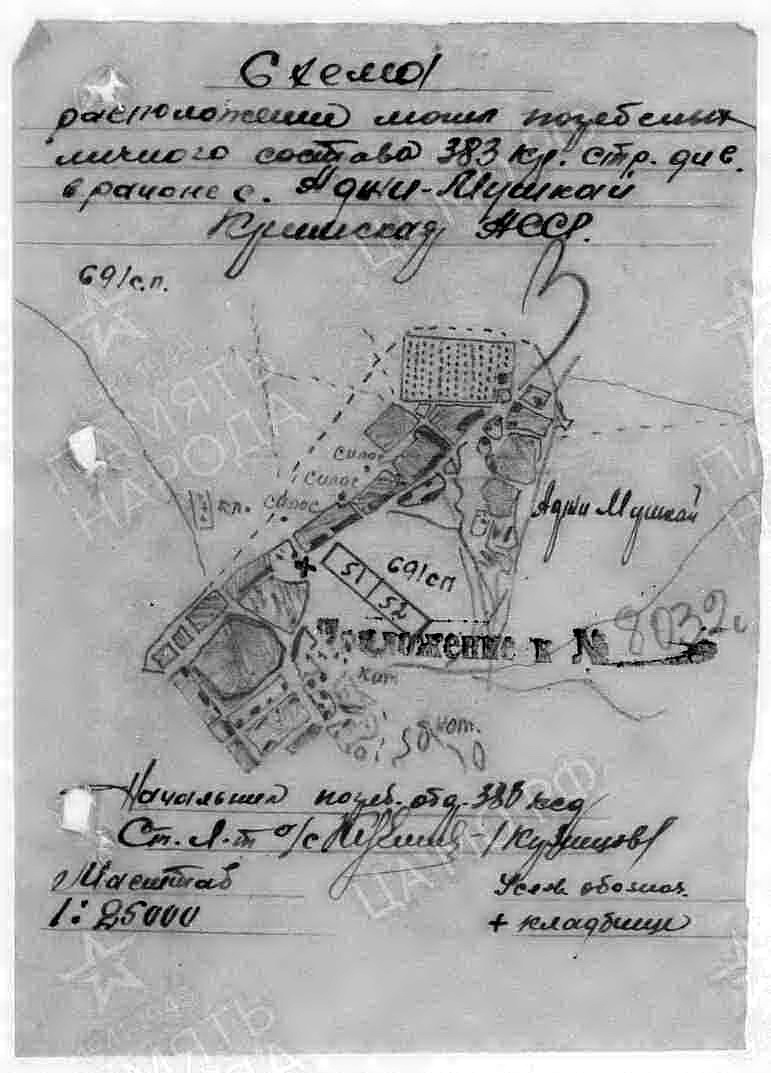 Схема
расположения могил погребенных
личного состава 383 кр. стр. див.
в районе с. Аджи-Мушкай
Крымская АССР.
691 с.п.
силос
силос
силос
кл.
Аджи Мушкай
51
52
691 сп
Приложение к № 8032с
Кат
кат.
Начальник погреб. отд. 383 ксд
Ст. Л-т а/с /Кузнецов/
Масштаб
1:25000
Услов. обознач.
+ кладбище
ПАМЯТЬ
НАРОДА
ЦАМО РФ
ПАМЯТЬ